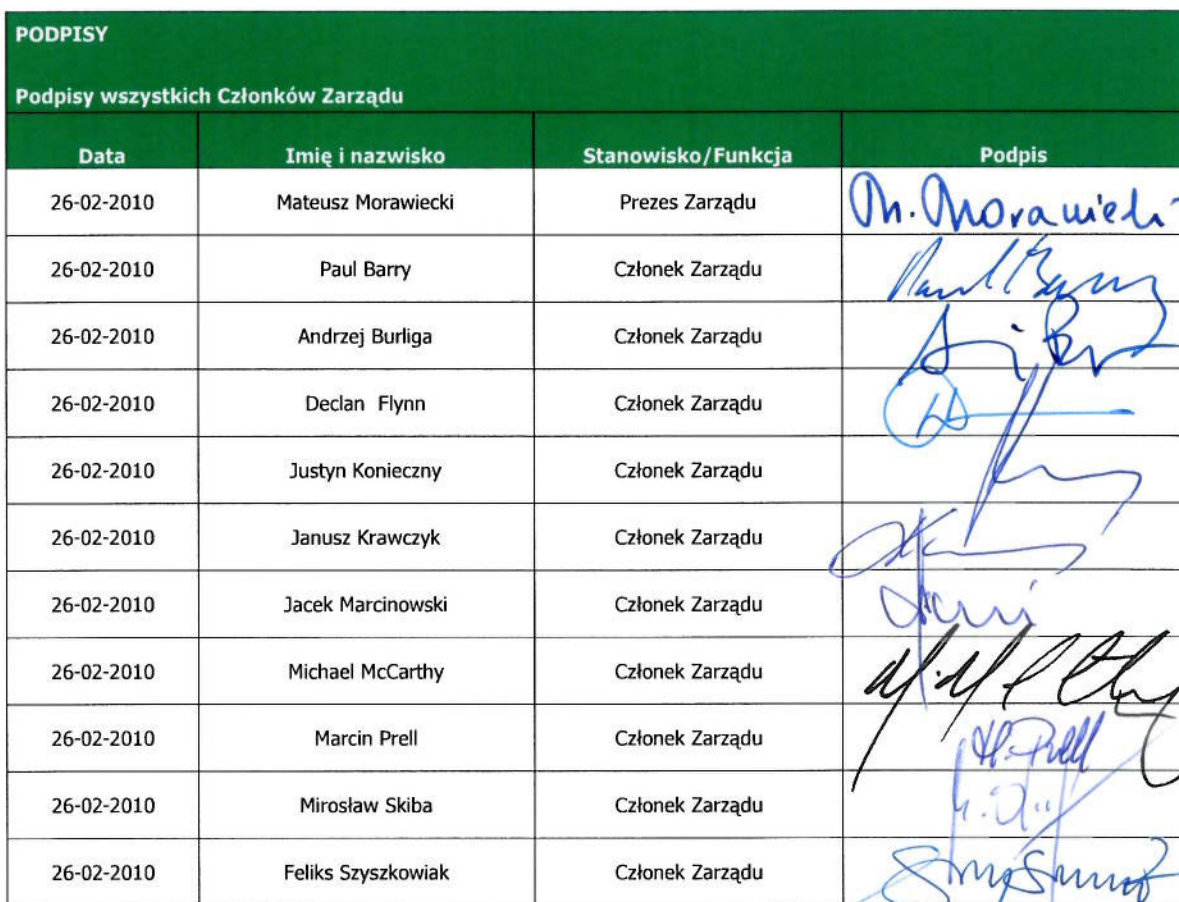 PODPISY
Podpisy wszystkich Członków Zarządu
Data Imię i nazwisko Stanowisko/Funkcja Podpis
26-02-2010 Mateusz Morawiecki Prezes Zarządu M. Morawiecki
26-02-2010 Paul Barry Członek Zarządu Paul Barry
26-02-2010 Andrzej Burliga Członek Zarządu
26-02-2010 Declan Flynn Członek Zarządu
26-02-2010 Justyn Konieczny Członek Zarządu
26-02-2010 Janusz Krawczyk Członek Zarządu
26-02-2010 Jacek Marcinowski Członek Zarządu
26-02-2010 Michael McCarthy Członek Zarządu
26-02-2010 Marcin Prell Członek Zarządu M. Prell
26-02-2010 Mirosław Skiba Członek Zarządu
26-02-2010 Feliks Szyszkowiak Członek Zarządu